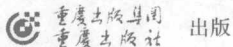 重庆出版集团
重庆出版社 出版